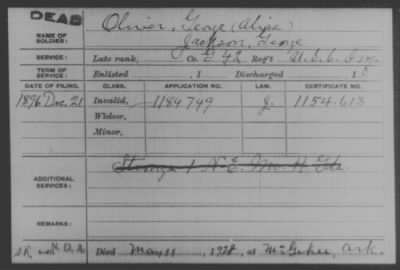 DEAD
NAME OF SOLDIER: Oliver, George (Alias)
Jackson, George
SERVICE: Late rank, Co. G 42 Reg't U.S.C. Inf.
TERM OF SERVICE: Enlisted , 1 Discharged , 1
DATE OF FILING. CLASS. APPLICATION NO. LAW. CERTIFICATE NO.
1896 Dec. 21 Invalid, 1184749 J. 1154.613
Widow,
Minor,
ADDITIONAL SERVICES: 1 N.E.
REMARKS:
N.D.A. Died May 11, 1928, at McGehee, Ark.